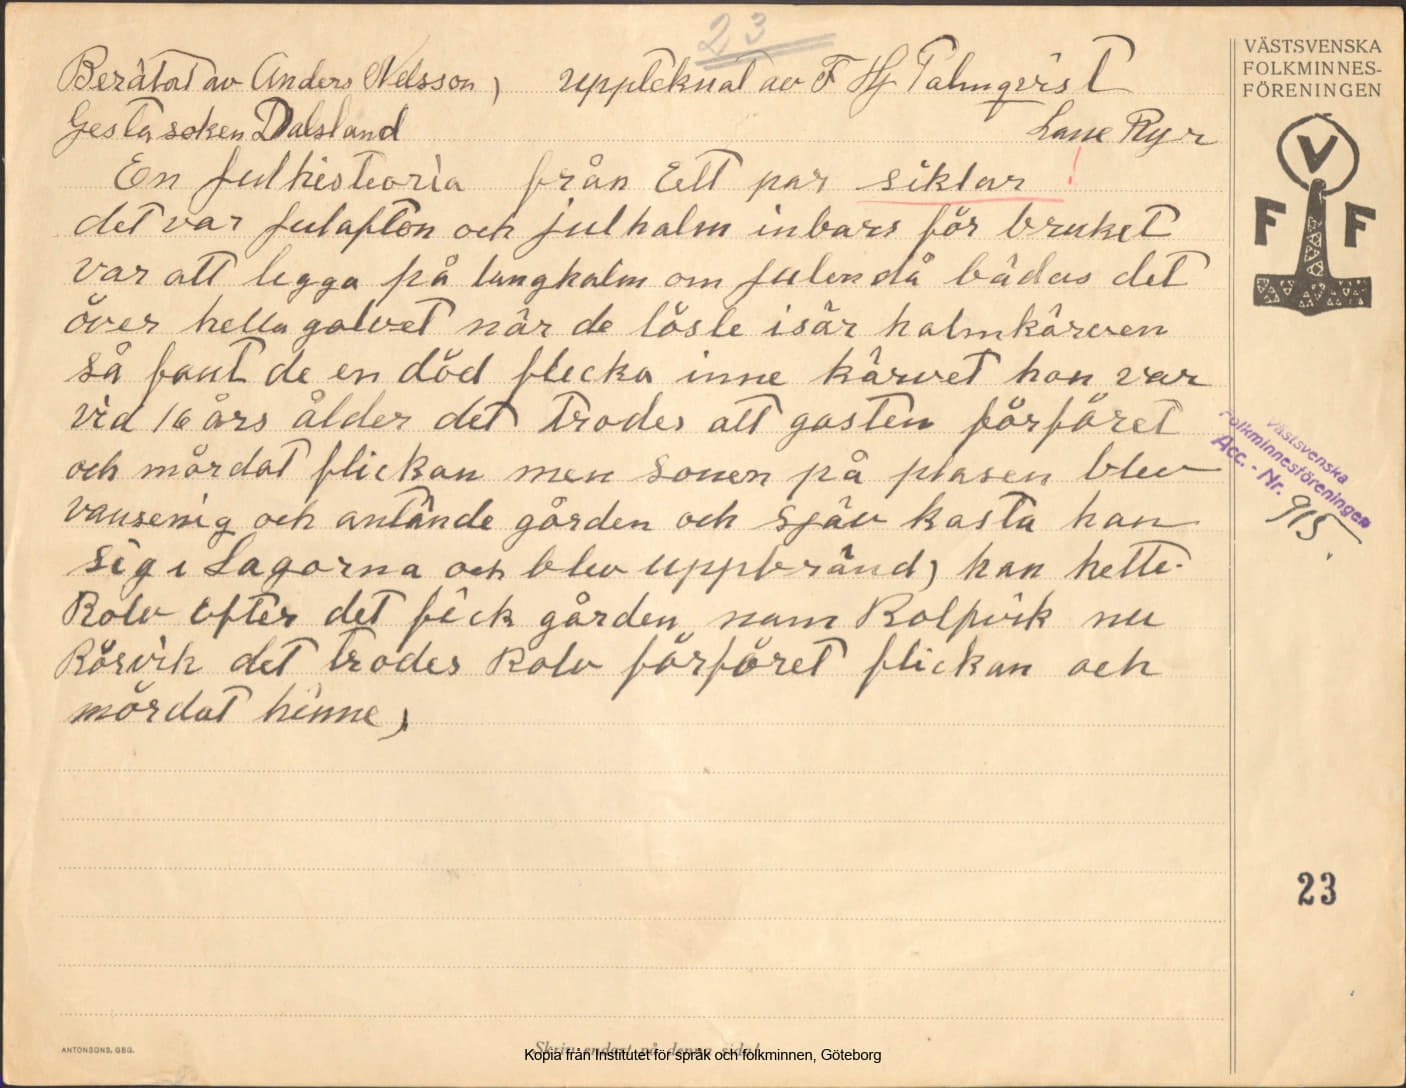 23
Berätat av Anders Nelsson, uppteknat av F Hj Palmqvist
Gesta soken Dalsland Lane Ryr
En Julhistoria från Ett par siklar !
det var Julafton och julhalm inbars för bruket
var att legga på langhalm om Julen då bädas det
över hella golvet när de löste isär halmkärven
så fant de en död flecka inne kärvet hon var
vid 16 års ålder det trodes att gasten förföret
och mördat flickan men sonen på plasen blev
vansenig och antände gården och sjäv kasta han
sig i Lagorna och blev uppbränd, han hette
Rolv Efter det fick gården namn Rolfvik nu
Rörvik det trodes Rolv förföret flickan och
mördat hinne,
VÄSTSVENSKA
FOLKMINNES-
FÖRENINGEN
V
F F
Västsvenska
Folkminnesföreningen
Acc. - Nr.
915.
23
ANTONSONS, GBG.
Skriv endast på denna sida!
Kopia från Institutet för språk och folkminnen, Göteborg